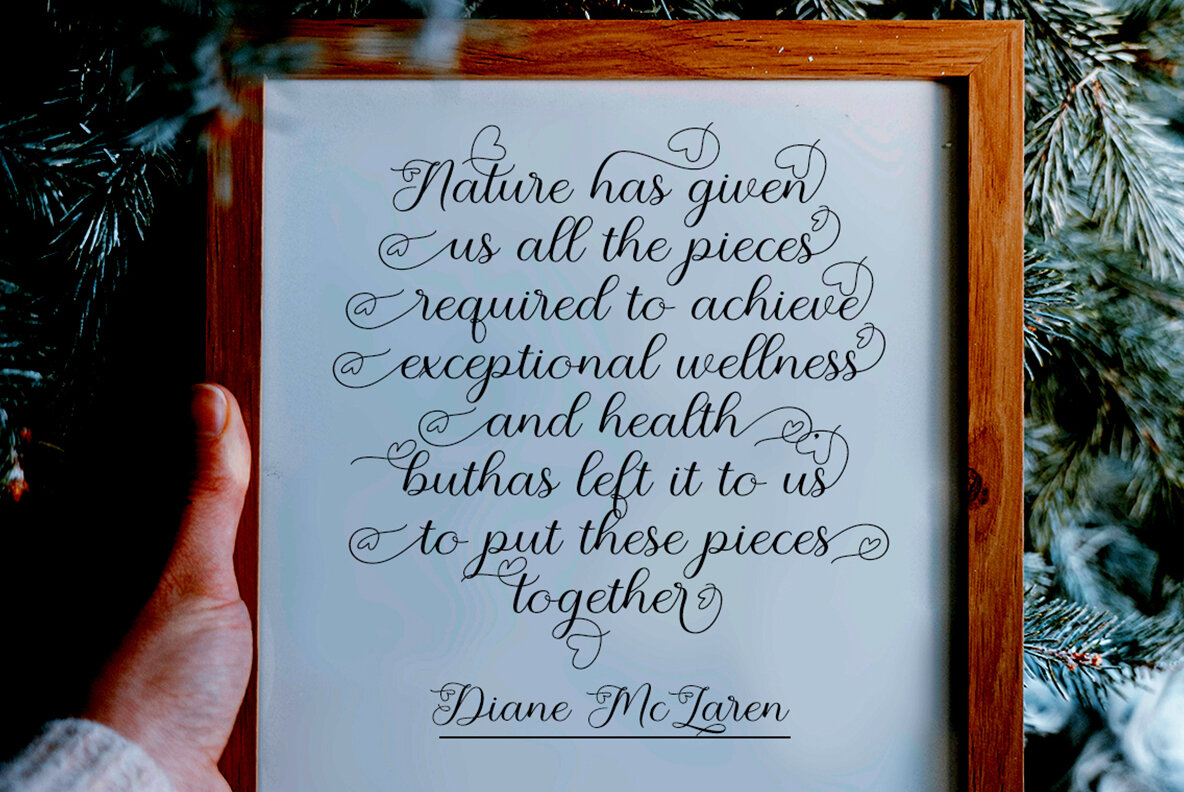 Nature has given
us all the pieces
required to achieve
exceptional wellness
and health .
buthas left it to us
to put these pieces
together
Diane McLaren